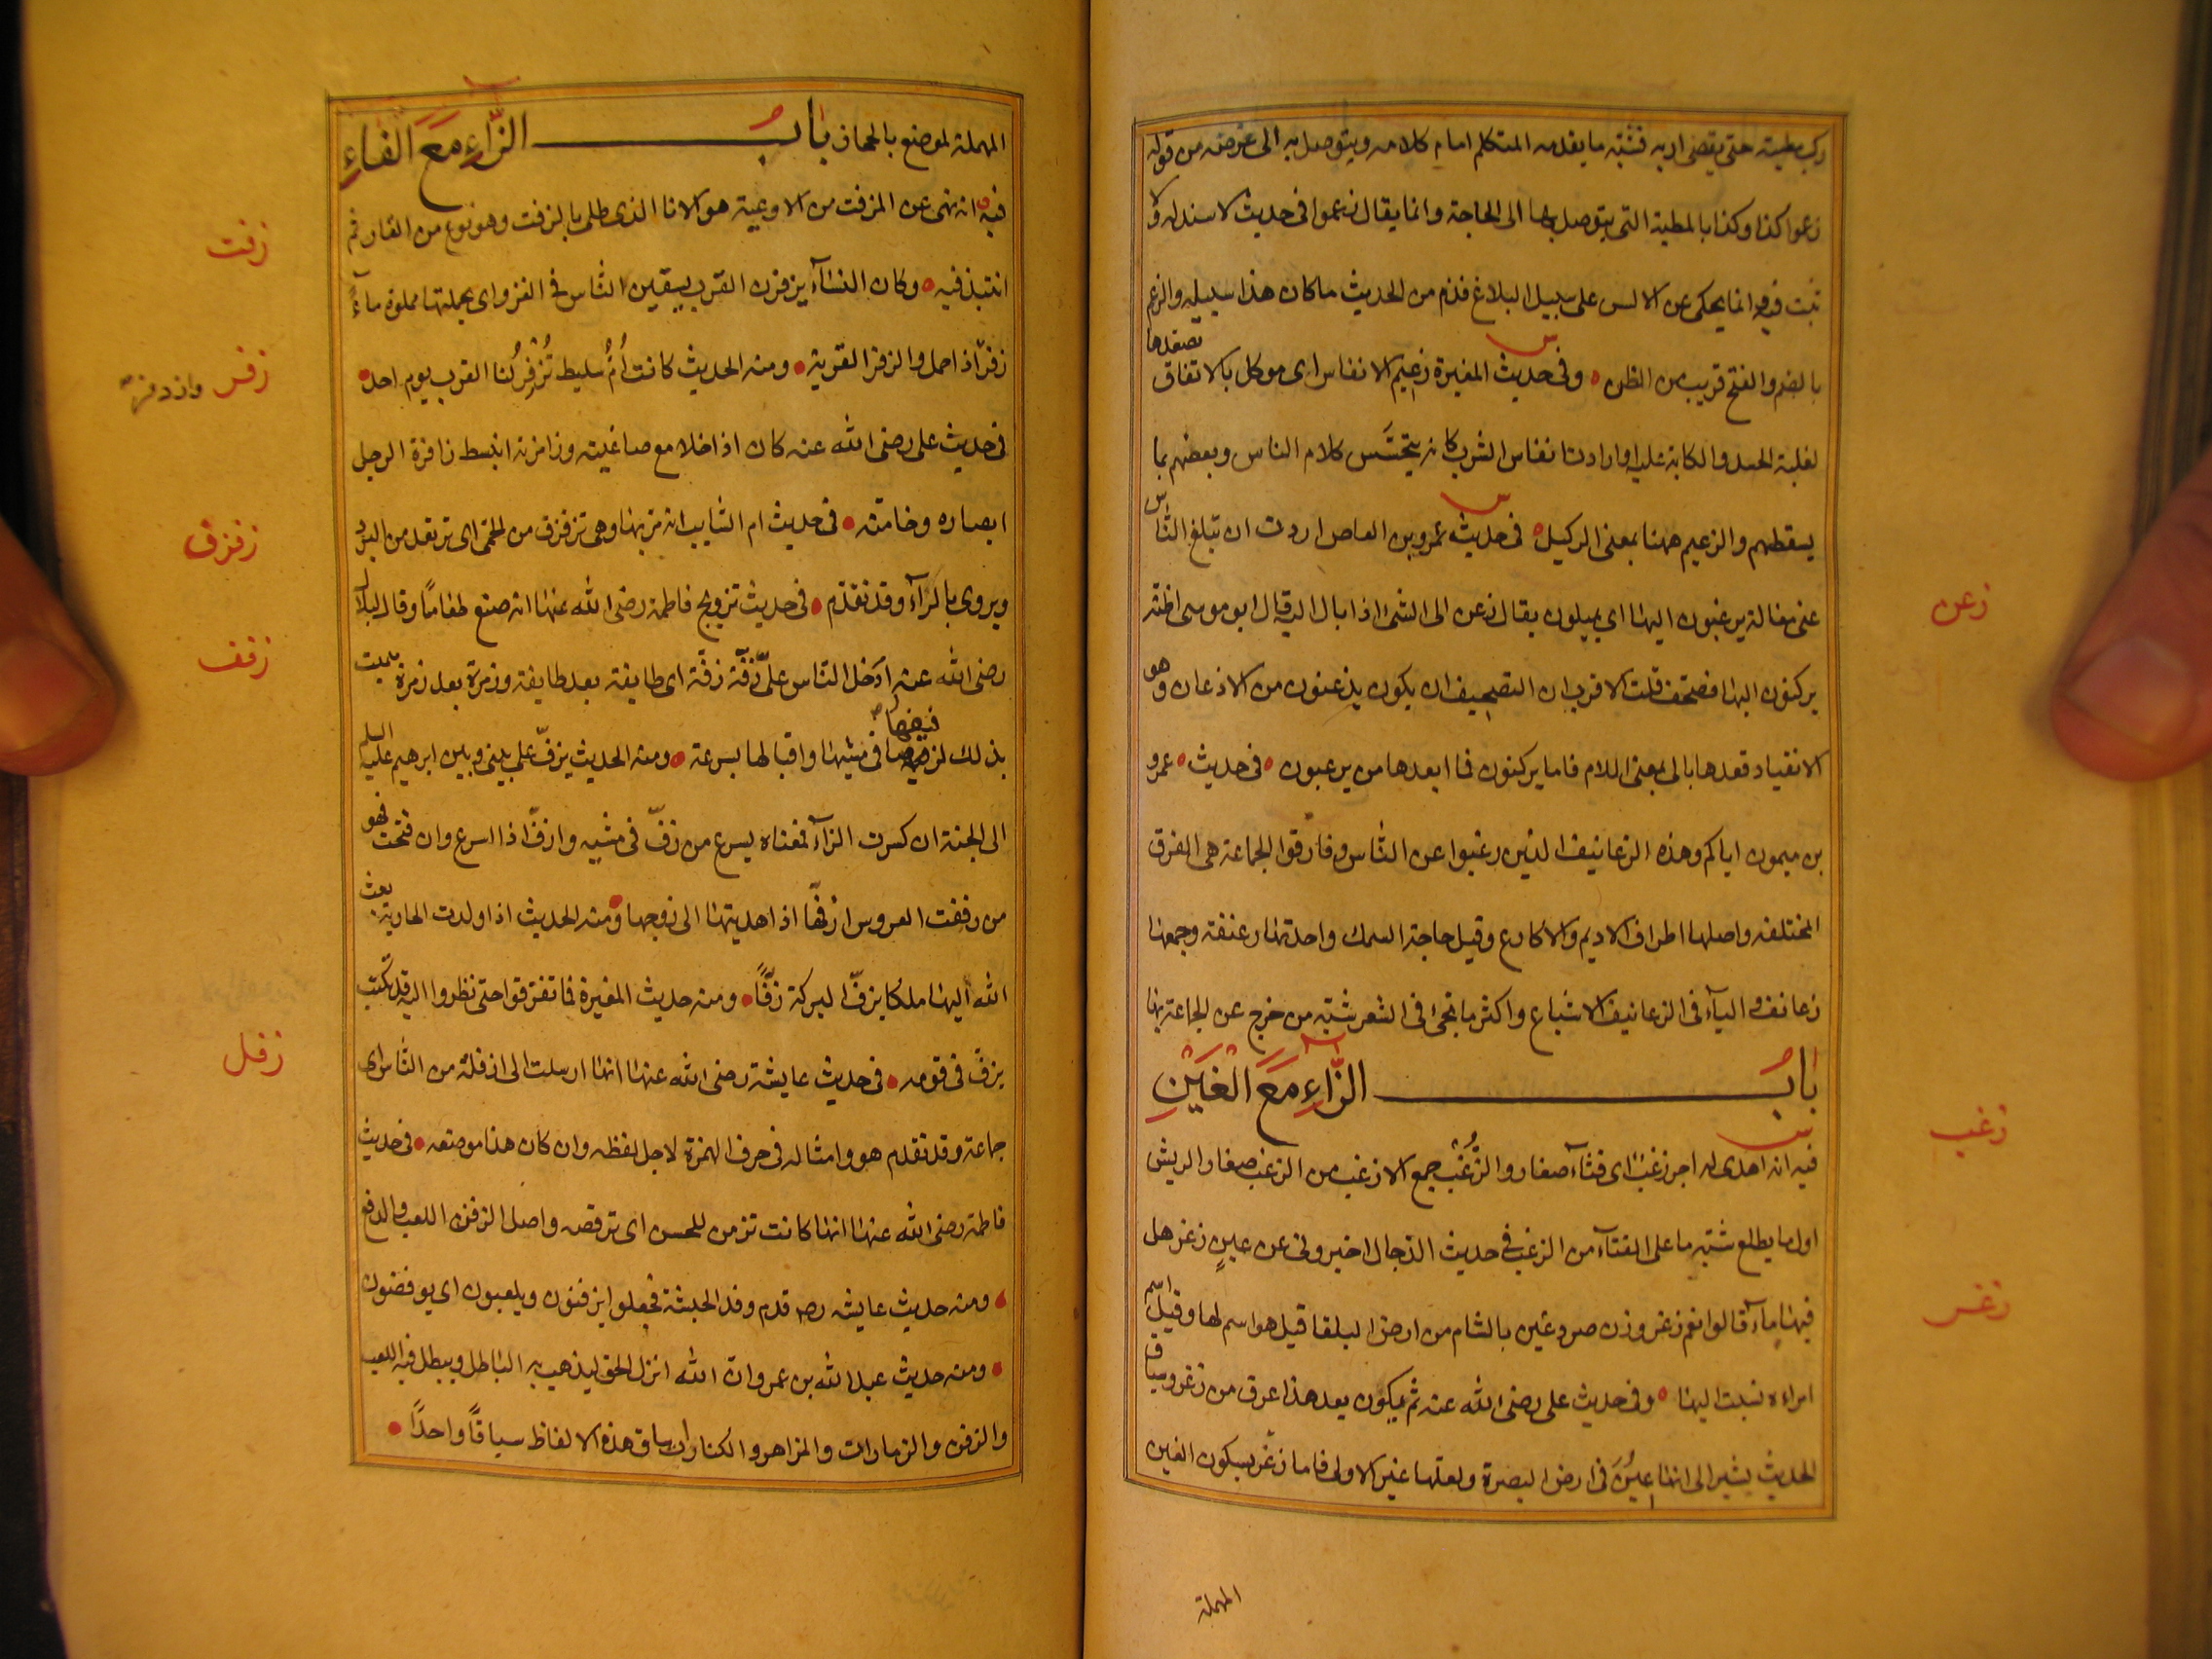 ركب مطيته حتى يقضى اربه فشبه ما يقدمه المتكلم امام كلامه ويتوصل به الى غرضه من قوله
زعموا كذا وكذا بالمطية التى يتوصل بها الى الحاجة وانما يقال زعموا فى حديث لا سند له ولا
ثبت فيه وانما يحكى عن الالس على سبيل البلاغ فذم من الحديث ما كان هذا سبيله والزعم
بالضم والفتح قريب من الظن وفى حديث المغيرة زعيم الانفاس اى موكل بالانفاق يصعدها
لغلبة الحسد والكابة عليه او ارادت انفاس الشرب كانه يتحسس كلام الناس ويعضهم بما
يسقطهم والزعيم ههنا بمعنى الوكيل فى حديث عمرو بن العاص اردت ان تبلغ الناس
عنى مقالة يرغبون اليها اى يميلون يقال زعن الى الشئ اذا مال اليه قال ابو موسى اظنه
يركنون اليها فصحف قلت الاقرب ان التصحيف ان يكون يذعنون من الاذعان وهو
الانقياد فعداها بالى بمعنى اللام فاما يركنون فما ابعدها من يرعبون فى حديث عمرو
بن ميمون اياكم وهذه الزعانيف الذين رغبوا عن الناس وفارقوا الجماعة هى الفرق
المختلفه واصلها اطراف الاديم والاكارع وقيل حاجة السمك واحدتها زعنفة وجمعها
زعانف والياء فى الزعانيف الاشباع واكثر ما تجئ فى الشعر شبه من خرج عن الجماعة بها
باب الزاء مع الغين
زعن
زغب
زغر
فيه انه اهدى له اجر زغب اى قثاء صغار والزغب جمع الازغب من الزغب صغار الريش
اول ما يطلع شبه ما على القثاء من الزغب فى حديث الدجال اخبرونى عن عين زغر هل
فيها ماء قالوا نعم زغر وزن صرد عين بالشام من ارض البلقا قيل هو اسم لها وقيل اسم
امراءه نسبت اليها وفى حديث على رضى الله عنه ثم يكون بعد هذا غرق من زغر وسياق
الحديث يشير الى انها عين فى ارض البصرة ولعلها غير الاولى فاما زعر بسكون العين
المهملة
المهملة لموضع بالحجاز باب الزاء مع الفاء
فيه انه نهى عن المزفت من الاوعية هو الانا الذى طلى بالزفت وهو نوع من القار ثم
انتبذ فيه وكان النساء يزفرن القرب يسقين الناس فى الغزو اى يحملنها مملوة ماء
زفر اذا حمل والزفر القربة ومنه الحديث كانت ام سليط تزفر لنا القرب يوم احد
فى حديث على رضى الله عنه كان اذا خلا مع صاغيته وزافرته انبسط زافرة الرجل
انصاره وخاصته فى حديث ام السايب انه مر بها وهى تزفزف من الحمى اى ترتعد من البرد
ويروى بالراء وقد تقدم فى حديث تزويج فاطمة رضى الله عنها انه صنع طعاما وقال لبلال
رضى الله عنه ادخل الناس على زفة زفة اى طايفة بعد طايفة وزمرة بعد زمرة سميت
بذلك لزفيفها فى مشيها واقبالها بسرعة ومنه الحديث يزف على بينى وبين ابرهيم عليه السلم
الى الجنة ان كسرت الزاء فمعناه يسرع من زف فى مشيه وازف اذا اسرع وان فتحت فهو
من زففت العروس ازفها اذا اهديتها الى زوجها ومنه الحديث اذا ولدت الجارية بعث
الله اليها ملكا يزف البركة زفا ومنه حديث المغيرة فما تفرقوا حتى نظروا اليه قد تكتب
يزف فى قومه فى حديث عايشة رضى الله عنها انها ارسلت الى ازفلة من الناس اى
جماعة وقد تقدم هو وامثاله فى حرف الهمزة لاجل لفظه وان كان هذا موضعه فى حديث
فاطمة رضى الله عنها انها كانت تزفن للحسن اى ترقصه واصل الزفن اللعب والدفع
ومنه حديث عايشه رضـ قدم وفد الحبشة فجعلوا يزفنون ويلعبون اى يرفضون
ومنه حديث عبد الله بن عمرو ان الله انزل الحق ليذهب به الباطل ويبطل فيه اللعب
والزفن والزمارات والمزاهر والكنارات ساق هذه الالفاظ سياقا واحدا
زفت
زفر
زفزف
زفف
زفل